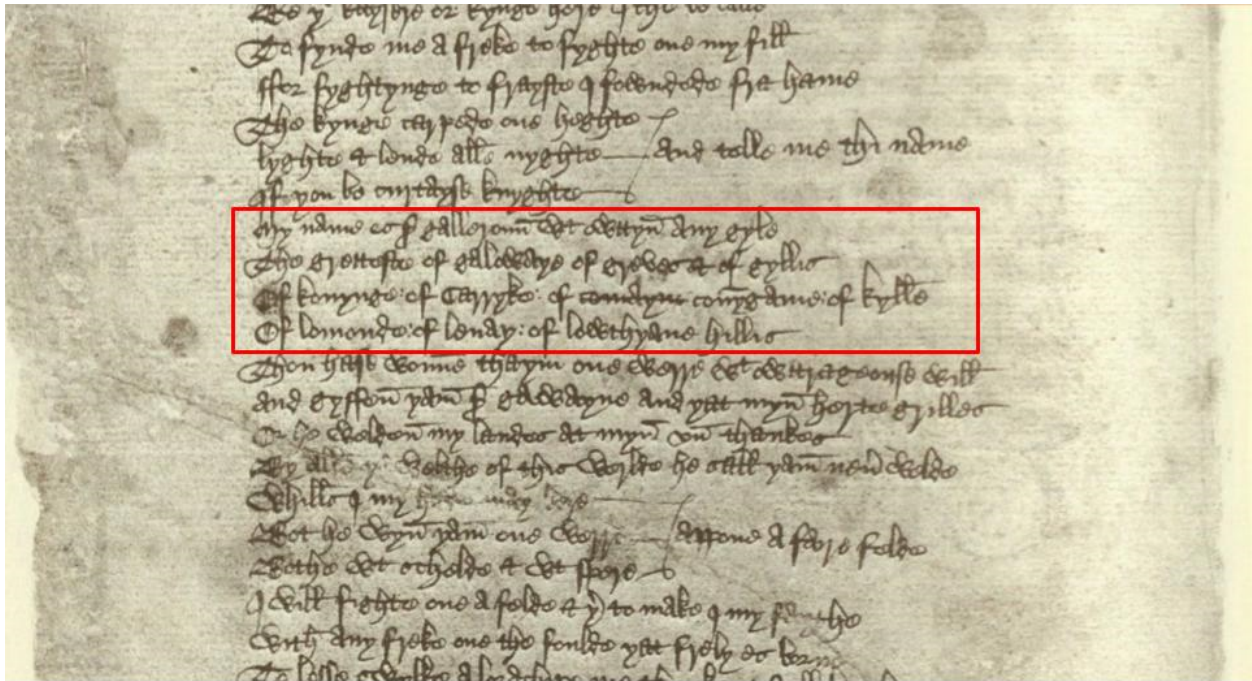 To fynde me a freke to fyghte one my fill
ffor fyghtynge to frayste I fowndede fra hame
The kynge carpede one heghte
lyghte & lende all nyghte And telle me thi name
If þou be curtayse knyghte
My name es sr galleroun wt owttyn Any gyle
The gretteste of galowaye of greves & of gyllis
Of konynge : of Carryke : of comayne conyngame : of kylle
Of lomonde : of lenay : of lowthyane hillis
Thou hase wonne thaym one werre wt owttrageouse will
and gyffen þam sr gawayne And þat myn herte grilles
Or he welden my landes at myn vn thankes
By alle þe welthe of this werlde he sall þam neuer welde
Whills I my may bere
Bot he wyn þam one werre appone A faire felde
Bothe wt schelde & wt spere
I will fighte one a felde & þerto make I my faythe
With any freke one the foulde þat frely es borne
To lesse